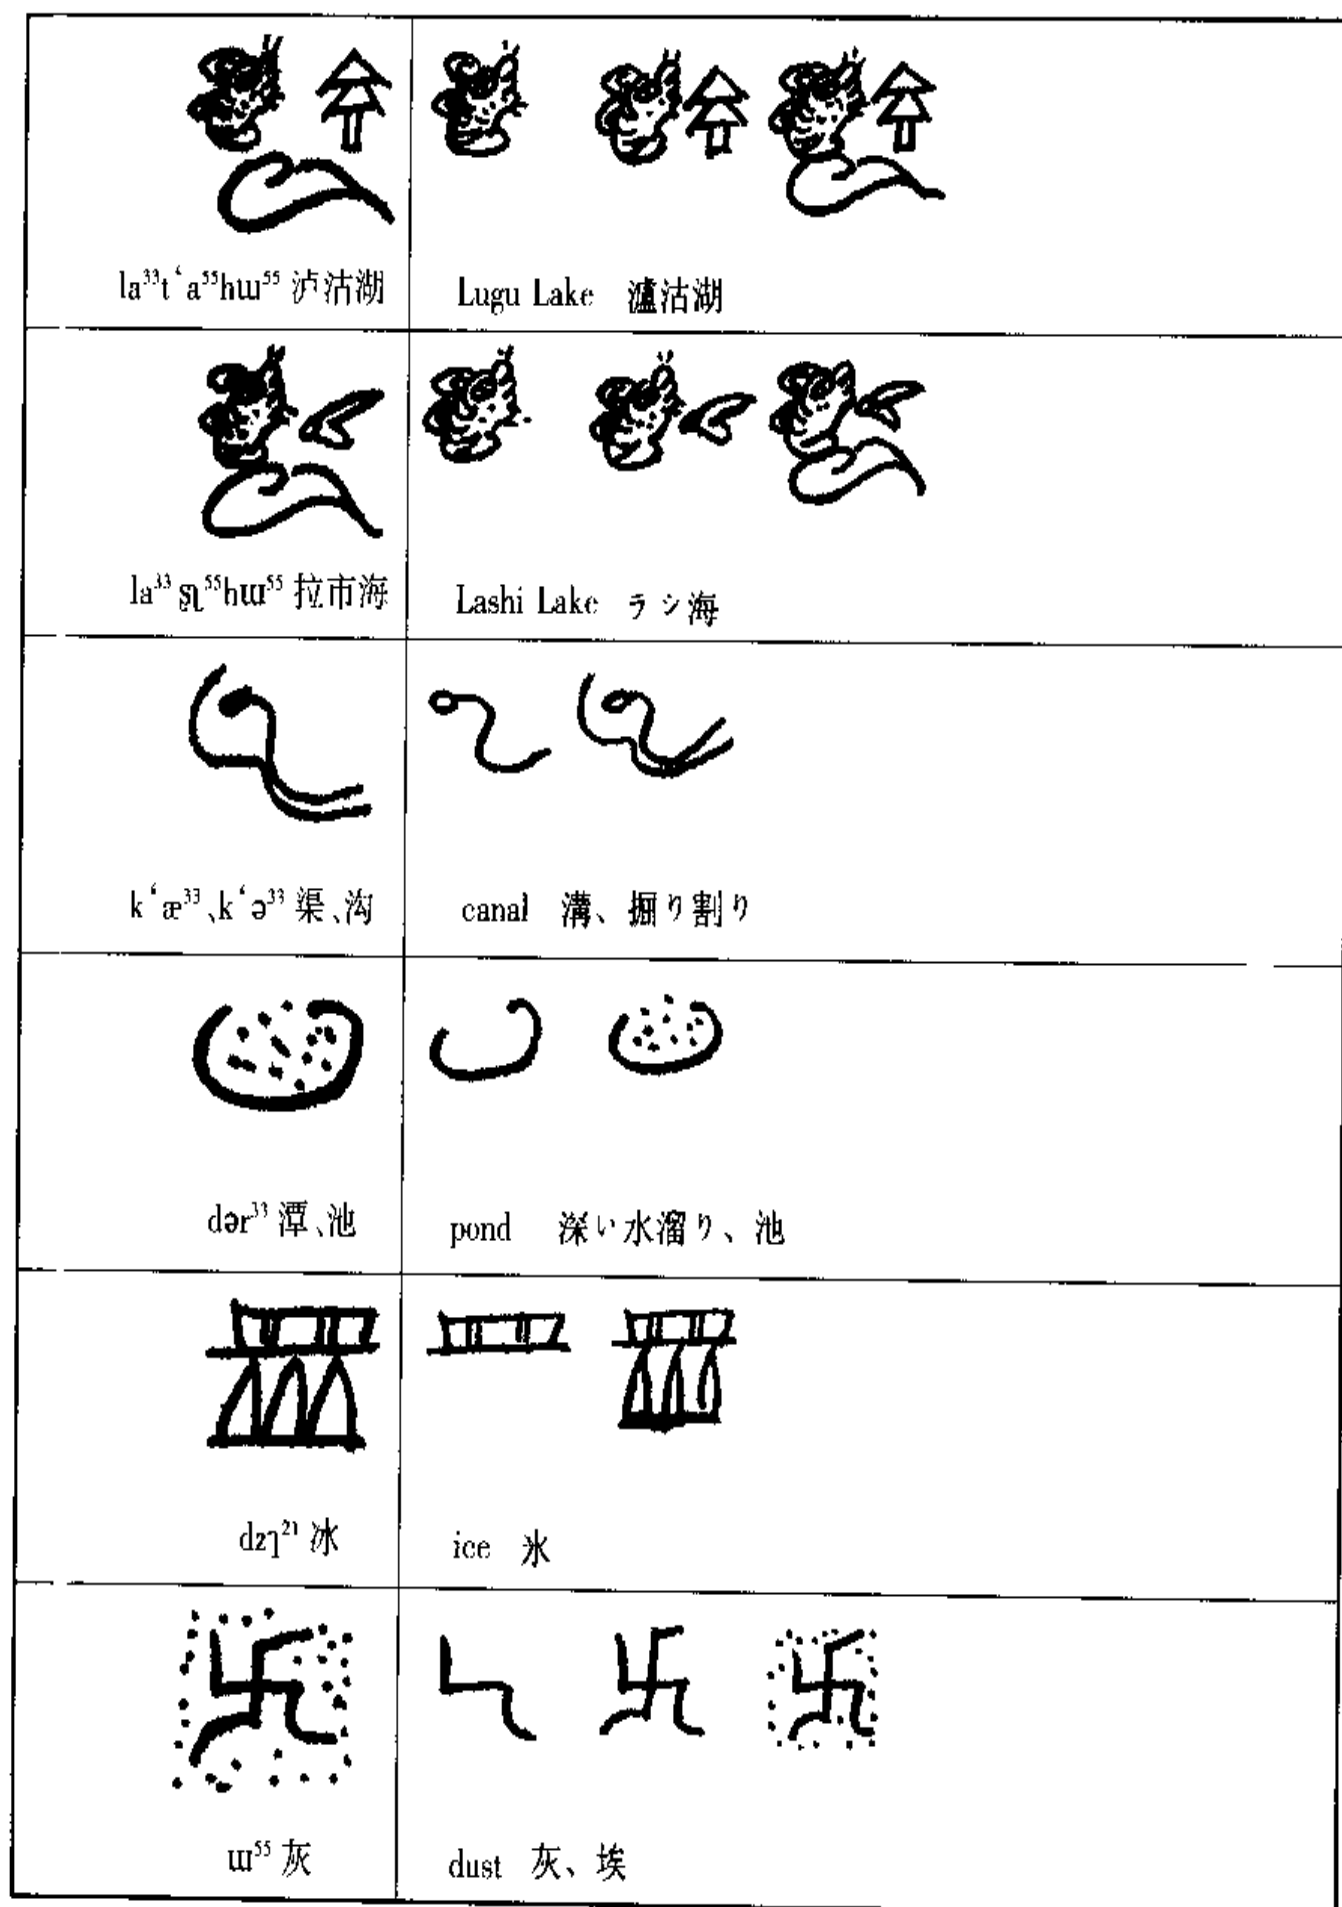 la³³t‘a⁵⁵hɯ⁵⁵ 泸沽湖
Lugu Lake 瀘沽湖
la³³ ʂʅ⁵⁵hɯ⁵⁵ 拉市海
Lashi Lake ラシ海
k‘æ³³、k‘ə³³ 渠、沟
canal 溝、掘り割り
dər³³ 潭、池
pond 深い水溜り、池
dzʅ²¹ 冰
ice 氷
ɯ⁵⁵ 灰
dust 灰、埃